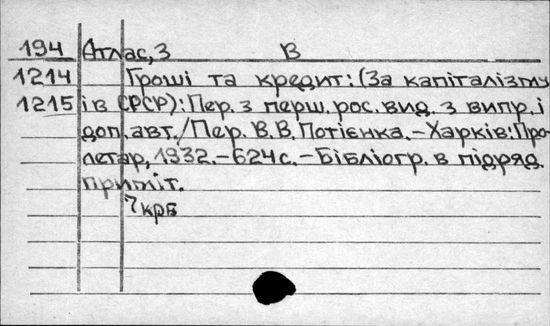 194 Атлас, З В
1214 Гроші та кредит: (За капіталізму
1215 і в СРСР): Пер. з перш. рос. вид. з випр. і
доп. авт. / Пер. В.В. Потієнка. – Харків: Про-
летар, 1932. – 624 с. – Бібліогр. в підряд.
приміт.
7 крб